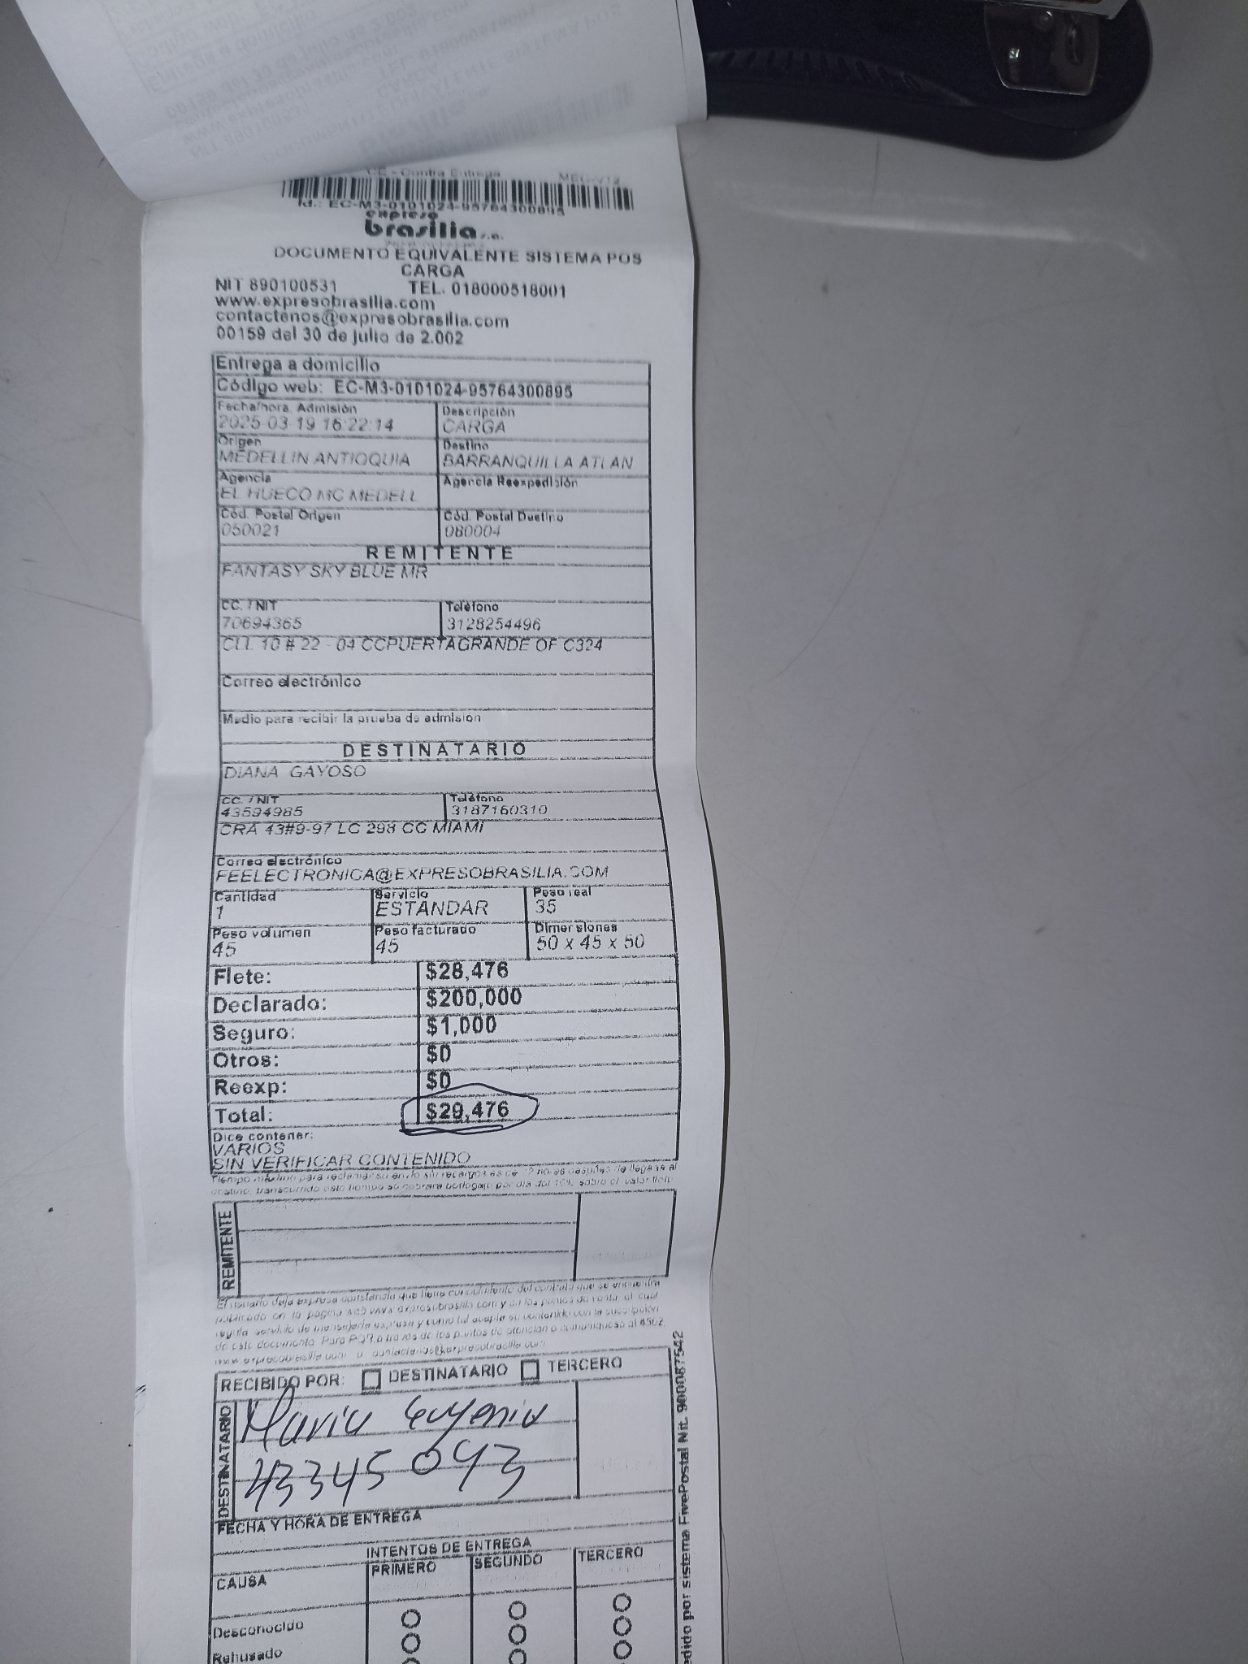 CE - Contra Entrega
Id.: EC-M3-0101024-95764300895
expreso
brasilia s.a.
DOCUMENTO EQUIVALENTE SISTEMA POS
CARGA
NIT 890100531 TEL. 018000518001
www.expresobrasilia.com
contactenos@expresobrasilia.com
00159 del 30 de julio de 2.002
Entrega a domicilio
Código web: EC-M3-0101024-95764300895
Fecha/hora. Admisión Descripción
2025-03-19 16:22:14 CARGA
Origen Destino
MEDELLIN ANTIOQUIA BARRANQUILLA ATLAN
Agencia Agencia Reexpedición
EL HUECO MC MEDELL
Cód. Postal Origen Cód. Postal Destino
050021 080004
REMITENTE
FANTASY SKY BLUE MR
CC. / NIT Teléfono
70694365 3128254496
CLL 10 # 22 - 04 CCPUERTAGRANDE OF C324
Correo electrónico
Medio para recibir la prueba de admision
DESTINATARIO
DIANA GAYOSO
CC. / NIT Teléfono
43594985 3187160310
CRA 43#9-97 LC 298 CC MIAMI
Correo electrónico
FEELECTRONICA@EXPRESOBRASILIA.COM
Cantidad Servicio Peso real
1 ESTANDAR 35
Peso volumen Peso facturado Dimensiones
45 45 50 x 45 x 50
Flete: $28,476
Declarado: $200,000
Seguro: $1,000
Otros: $0
Reexp: $0
Total: $29,476
Dice contener:
VARIOS
SIN VERIFICAR CONTENIDO
REMITENTE
RECIBIDO POR: DESTINATARIO TERCERO
DESTINATARIO
Maria Eugenia
43345043
FECHA Y HORA DE ENTREGA
INTENTOS DE ENTREGA
CAUSA PRIMERO SEGUNDO TERCERO
Desconocido
Rehusado
edido por sistema FivePostal Nit. 900087542